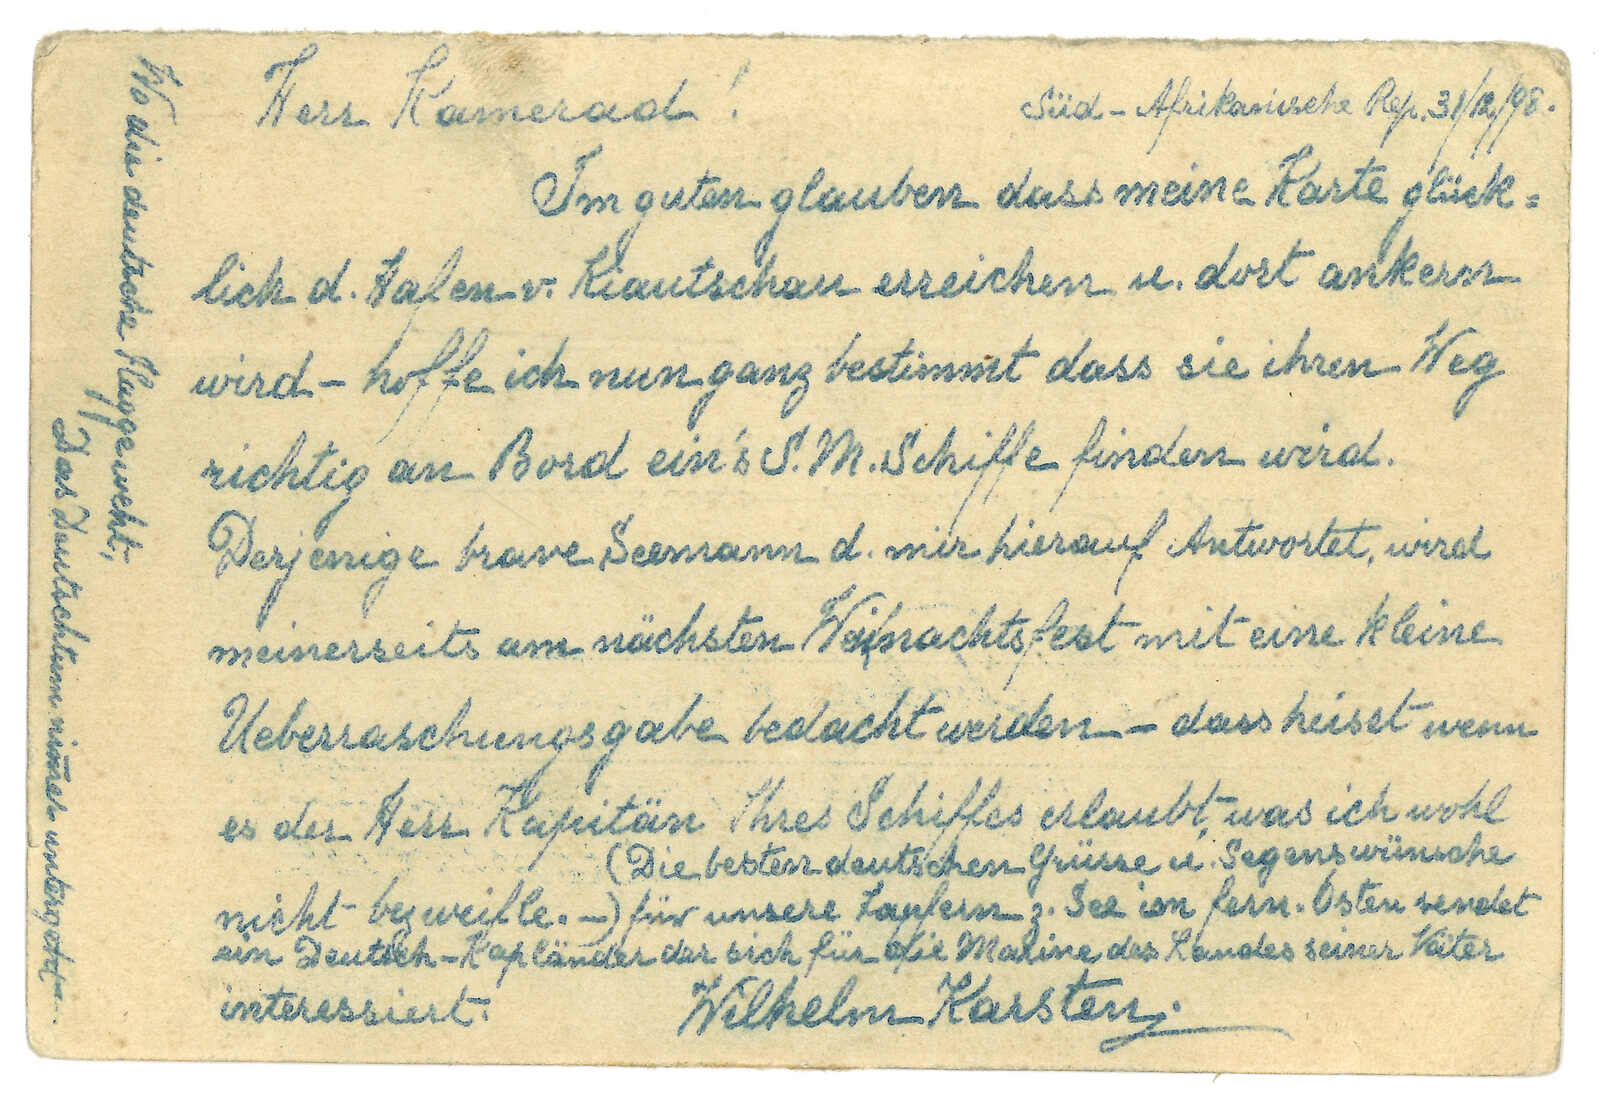 Herr Kamerad! Süd-Afrikanische Rep. 31/12/98.
Im guten glauben dass meine Karte glück=
lich d. Hafen v. Kiautschau erreichen u. dort ankern
wird – hoffe ich nun ganz bestimmt dass sie ihren Weg
richtig an Bord ein's S. M. Schiffe finden wird.
Derjenige brave Seemann d. mir hierauf Antwortet, wird
meinerseits am nächsten Weihnachtsfest mit eine kleine
Ueberraschungsgabe bedacht werden – dass heisst wenn
es der Herr Kapitän Ihres Schiffes erlaubt, was ich wohl
nicht bezweifle. –
(Die besten deutschen Grüsse u. Segenswünsche
) für unsere Tapfern z. See im fern. Osten sendet
ein Deutsch-Kapländer der sich für die Marine des Landes seiner Väter
interessiert.
Wilhelm Karsten.
Wo die deutsche Flagge weht,
Das Deutschtum nimmer untergeht....